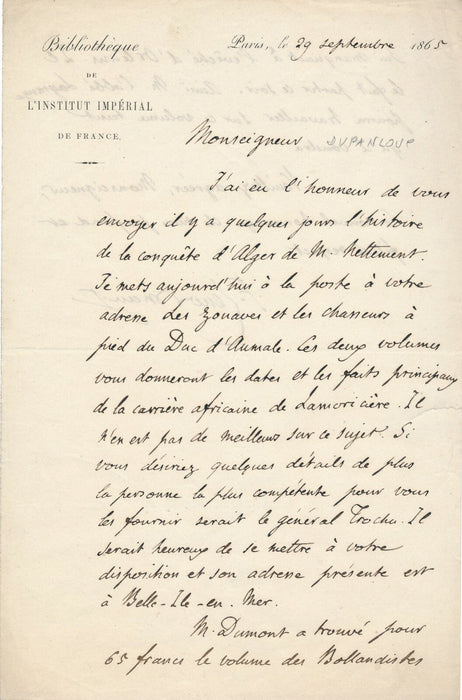 Bibliothèque
DE
L'INSTITUT IMPÉRIAL
DE FRANCE.
Paris, le 29 septembre 1865
Monseigneur DUPANLOUP
J'ai eu l'honneur de vous
envoyer il y a quelques jours l'histoire
de la conquête d'Alger de M. Nettement.
Je mets aujourd'hui à la poste à votre
adresse Les Zouaves et les chasseurs à
pied du Duc d'Aumale. Ces deux volumes
vous donneront les dates et les faits principaux
de la carrière africaine de Lamoricière. Il
n'en est pas de meilleurs sur ce sujet. Si
vous désiriez quelques détails de plus
la personne la plus compétente pour vous
les fournir serait le général Trochu. Il
serait heureux de se mettre à votre
disposition et son adresse présente est
à Belle-Ile-en-Mer.
M. Dumont a trouvé pour
65 francs le volume des Bollandistes